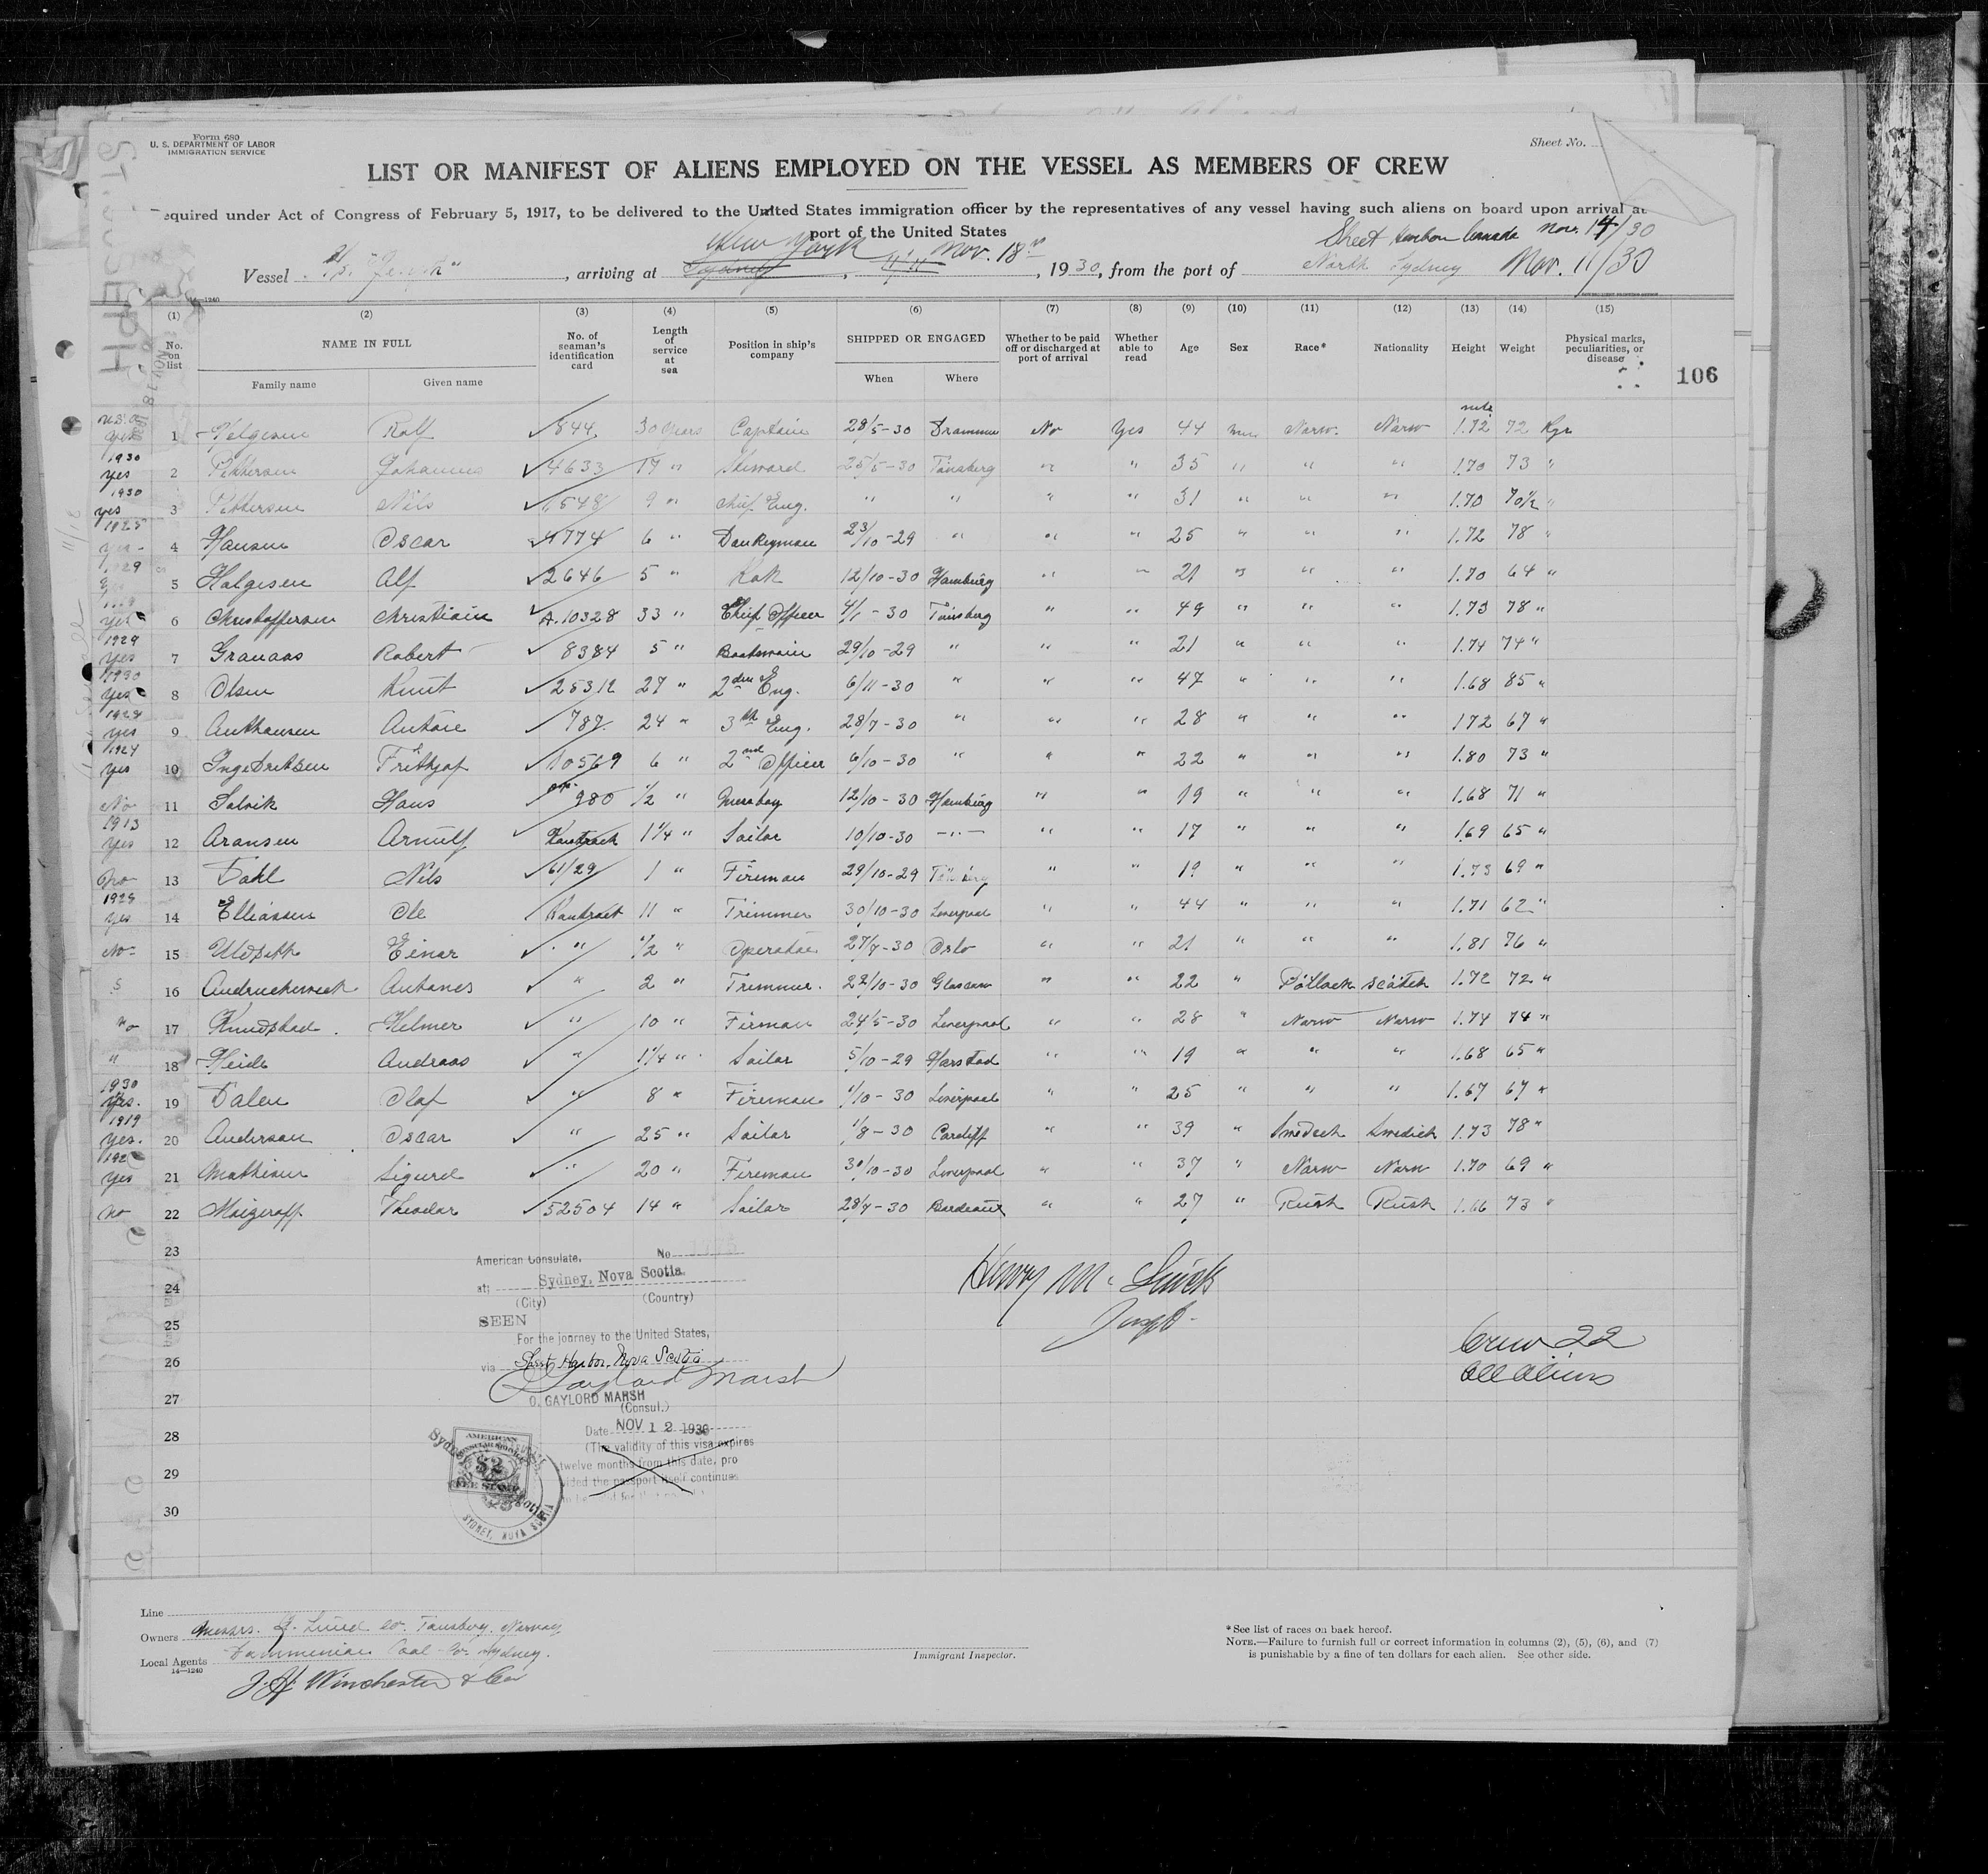 Form 680
U. S. DEPARTMENT OF LABOR
IMMIGRATION SERVICE
Sheet No.
LIST OR MANIFEST OF ALIENS EMPLOYED ON THE VESSEL AS MEMBERS OF CREW
equired under Act of Congress of February 5, 1917, to be delivered to the United States immigration officer by the representatives of any vessel having such aliens on board upon arrival at
port of the United States
New York Nov. 18 Sheet Canada Nov. 14/30
Vessel , arriving at Sydney , 1930, from the port of North Sydney Nov. 11/30
14—1240
(1) (2) (3) (4) (5) (6) (7) (8) (9) (10) (11) (12) (13) (14) (15)
No. on list NAME IN FULL No. of seaman's identification card Length of service at sea Position in ship's company SHIPPED OR ENGAGED Whether to be paid off or discharged at port of arrival Whether able to read Age Sex Race* Nationality Height Weight Physical marks, peculiarities, or disease
Family name Given name When Where
106
yes 1 Helgesen Rolf 844 30 years Captain 28/5-30 Drammen No Yes 44 Norw. Norw 1.72 72 Kgr
1930 yes 2 Pettersen Johannes 4633 17 " Steward 25/5-30 Tönsberg " " 35 " " " 1.70 73 "
1930 yes 3 Pettersen Nils 1548 9 " Chief Eng. " " " " 31 " " " 1.70 70½ "
1925 yes 4 Hansen Oscar 4774 6 " Donkeyman 23/10-29 " " " 25 " " " 1.72 78 "
5 Halgesen Alf 2646 5 " Kok 12/10-30 Hamburg " " 21 " " " 1.70 64 "
yes 6 Christoffersen Christian A.10328 33 " Chief Officer 4/1-30 Tönsberg " " 49 " " " 1.73 78 "
1929 yes 7 Granaas Robert 8384 5 " Boatswain 29/10-29 " " " 21 " " " 1.74 74 "
1930 yes 8 Olsen Knut 25312 27 " 2den Eng. 6/11-30 " " " 47 " " " 1.68 85 "
yes 9 Anthonsen Anton 787 24 " 3th Eng. 28/7-30 " " " 28 " " " 172 67 "
yes 10 Ingebretsen Frithjof 10569 6 " 2nd Officer 6/10-30 " " " 22 " " " 1.80 73 "
No 11 Solvik Hans 980 1/2 " Messboy 12/10-30 Hamburg " " 19 " " " 1.68 71 "
1913 yes 12 Aronsen Arnulf Kontrack 1¼ " Sailor 10/10-30 —"— " " 17 " " " 1.69 65 "
No 13 Dahl Nils 61/29 1 " Fireman 29/10-29 " 19 " " " 1.73 69 "
yes 14 Elliassen Ole Kontract 11 " Trimmer 30/10-30 Liverpool " " 44 " " " 1.71 62 "
No 15 Einar " 1/2 " Operator 27/7-30 Oslo " " 21 " " " 1.81 76 "
16 Antanes " 2 " Trimmer. 22/10-30 Glascow " " 22 " Pollack Scotch 1.72 72 "
No 17 Knudstad Helmer " 10 " Firman 24/5-30 Liverpool " " 28 " Norw Norw 1.74 74 "
" 18 Heide Andreas " 1¼ " Sailor 5/10-29 Harstad " " 19 " " " 1.68 65 "
1930 yes. 19 Dalen Olaf " 8 " Fireman 1/10-30 Liverpool " " 25 " " " 1.67 67 "
1919 yes. 20 Anderson Oscar " 25 " Sailor 1/8-30 Cardiff " " 39 " Swedish Swedish 1.73 78 "
yes 21 Mathisen Sigurd " 20 " Fireman 30/10-30 Liverpool " " 37 " Norw Norw 1.70 69 "
no 22 Maizeroff Theodor 52504 14 " Sailor 28/7-30 Bordeaux " " 27 " Rush Rush 1.66 73 "
23
24
25
26
27
28
29
30
American Consulate, No
at: Sydney, Nova Scotia.
(City) (Country)
SEEN
For the journey to the United States,
via Sheet Harbor, Nova Scotia
O Gaylord Marsh
O. GAYLORD MARSH
(Consul.)
Date NOV 12 1930
(The validity of this visa expires
twelve months from this date, pro
vided the passport itself continues
AMERICAN
CONSULAR SERVICE
$2
FEE STAMP
SYDNEY, NOVA SCOTIA
Henry Mc
Crew 22
all aliens
Line
Owners Messrs. Lund Co. Tonsberg. Norway
Local Agents Dominion Coal Co. Sydney.
14—1240
J. H. Winchester & Co
Immigrant Inspector.
*See list of races on back hereof.
NOTE.—Failure to furnish full or correct information in columns (2), (5), (6), and (7)
is punishable by a fine of ten dollars for each alien. See other side.